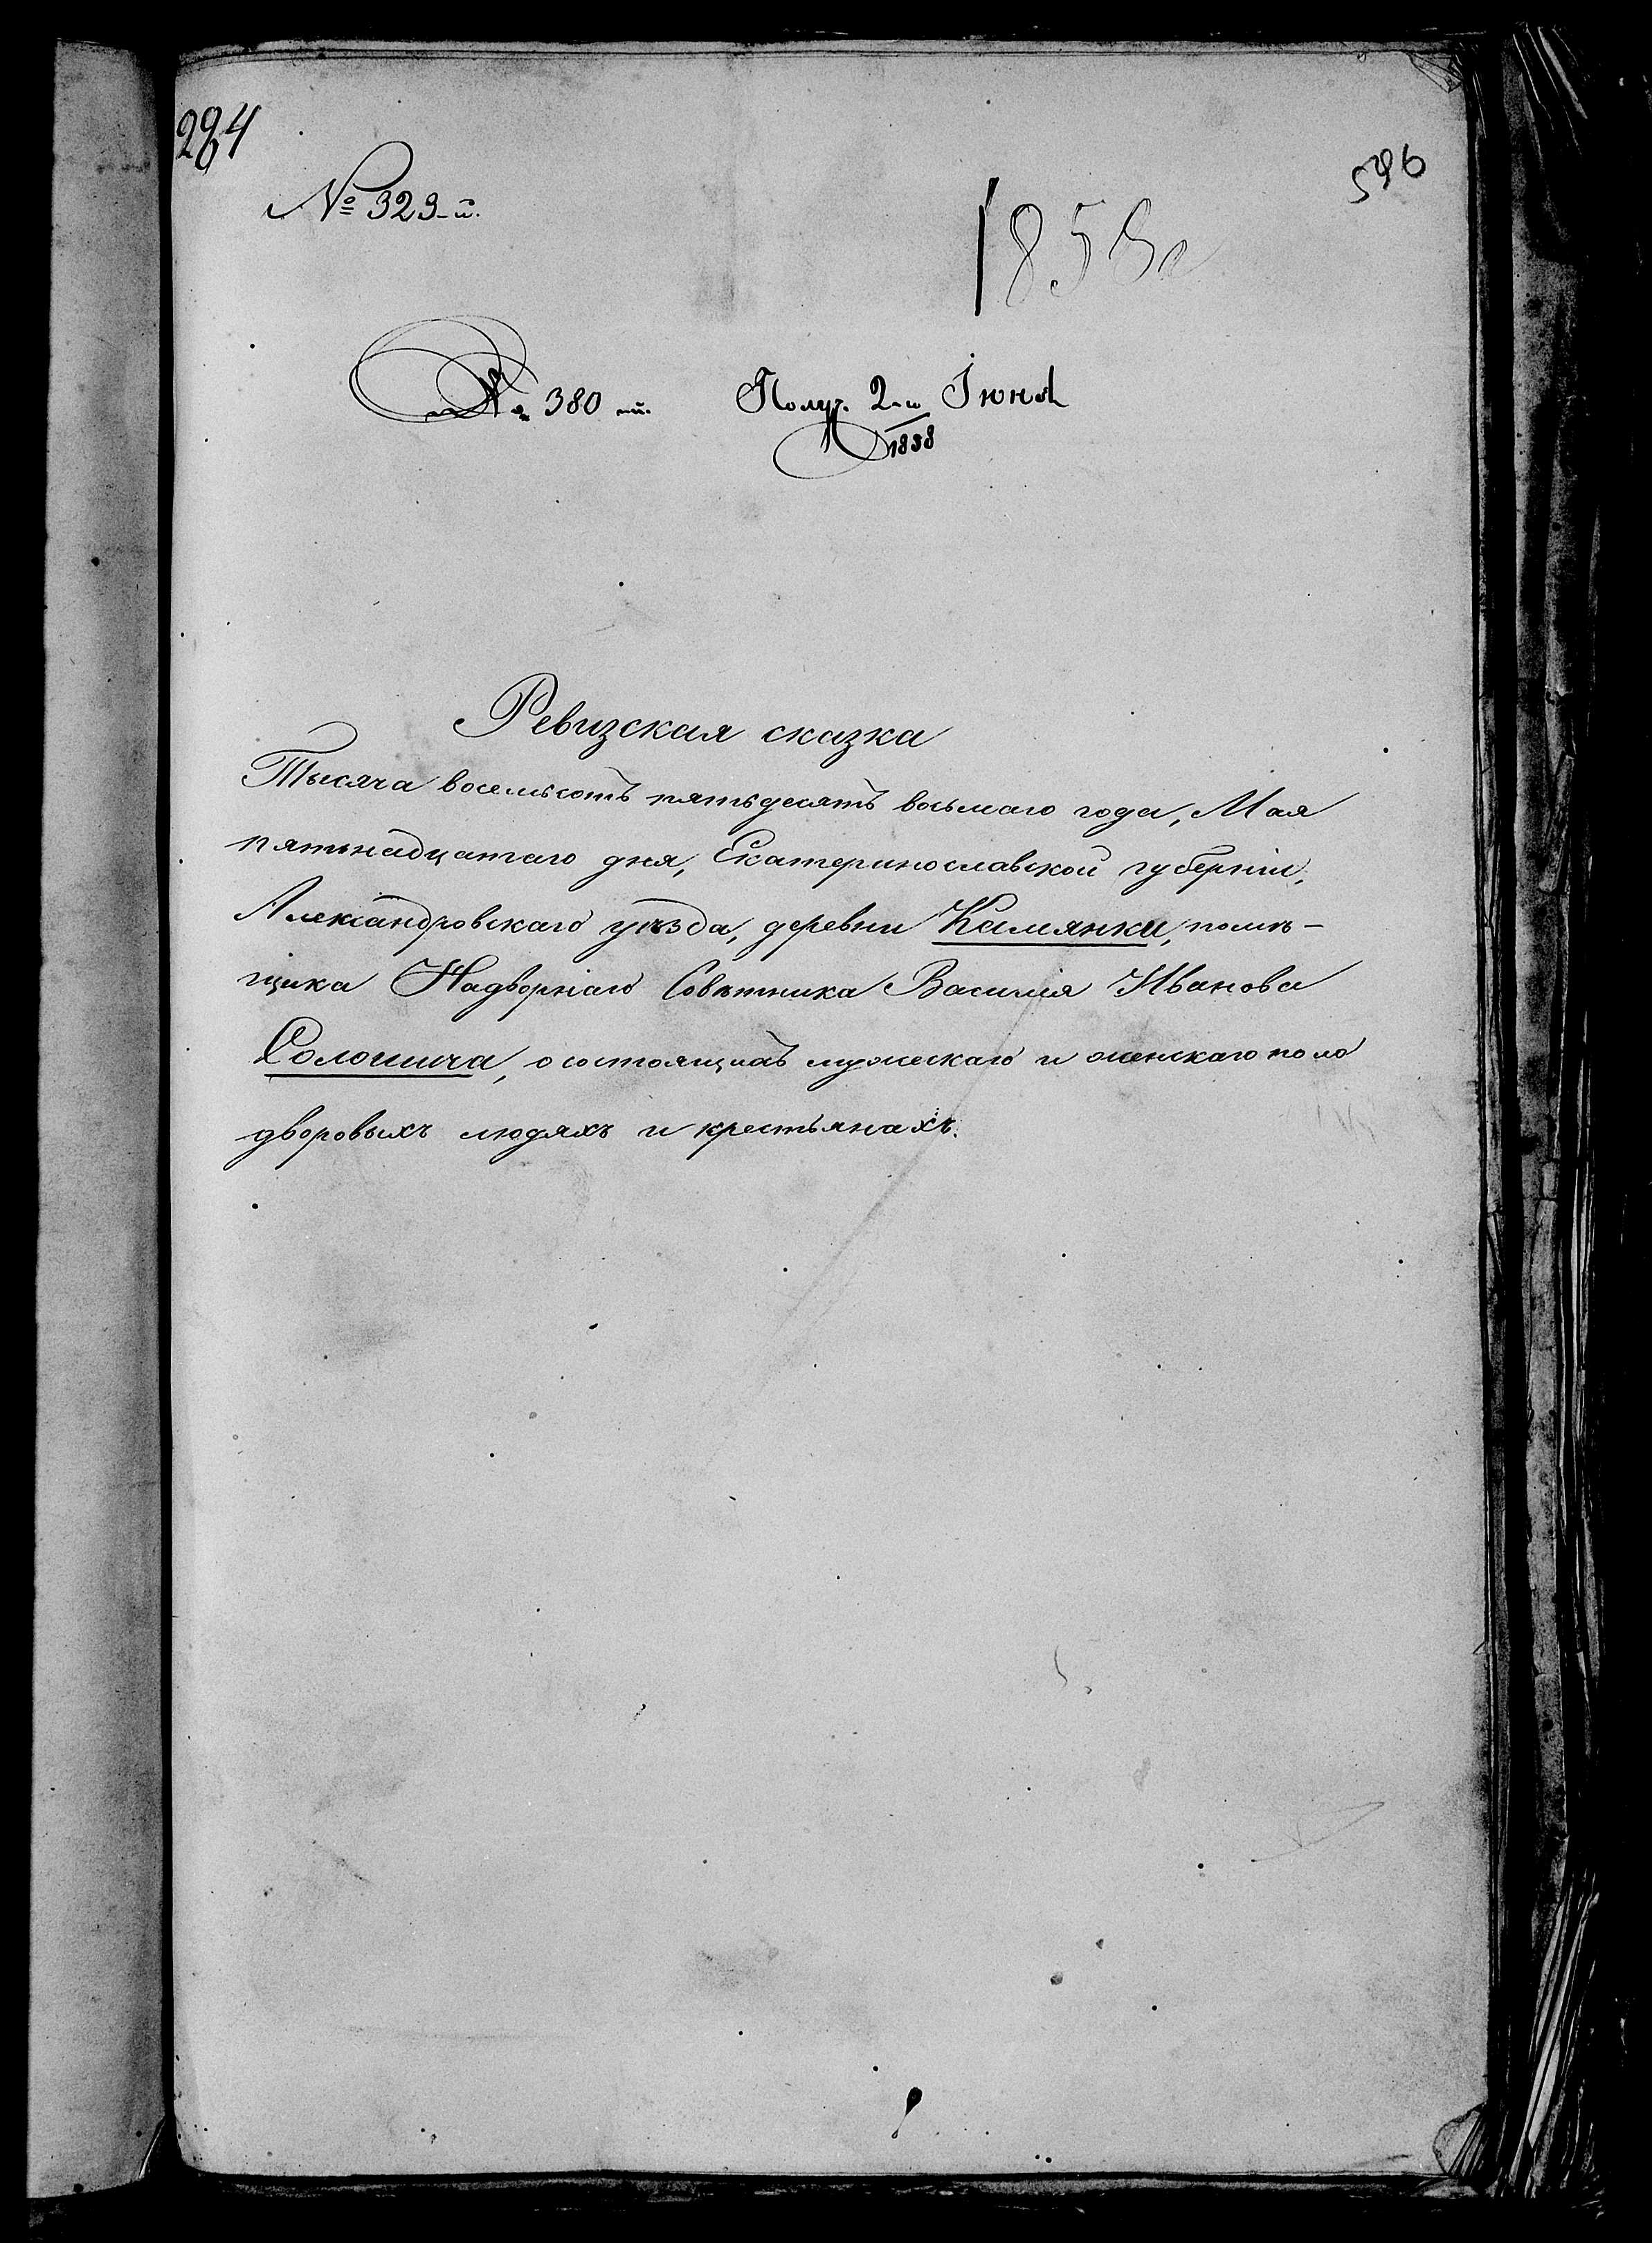 284
596
№ 323-й.
1858 г
№ 380-й. Получ. 2-го Іюня
1858
Ревизская сказка
Тысяча восемьсотъ пятьдесятъ восьмаго года, Мая
пятьнадцатаго дня, Екатеринославской губерніи,
Александровскаго уѣзда, деревни Камянки, помѣ-
щика Надворнаго Совѣтника Василія Иванова
Солошича, о состоящихъ мужескаго и женскаго пола
дворовыхъ людяхъ и крестьянахъ.